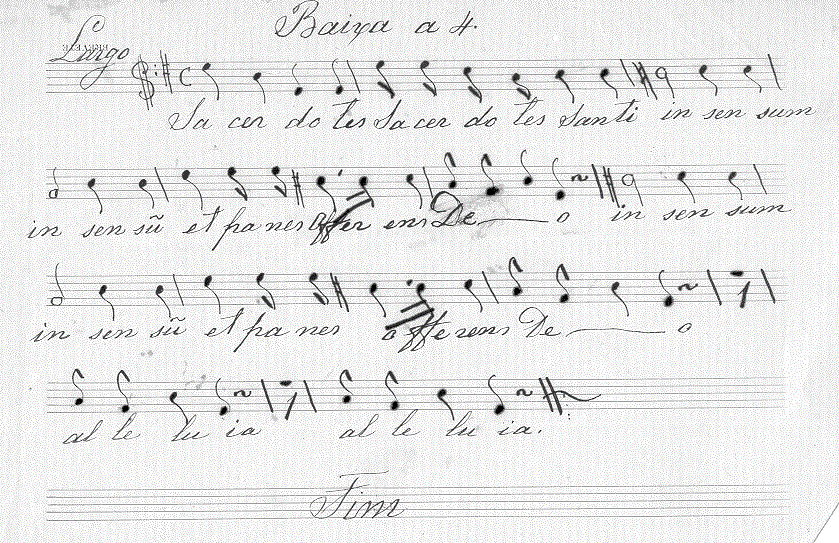 Baixa a 4.
Largo
Sa cer do tes Sa cer do tes Santi in sen sum
in sen sũ et pa nes offer ens De o in sen sum
in sen sũ et pa nes offerens De o
al le lu ia al le lu ia.
Fim